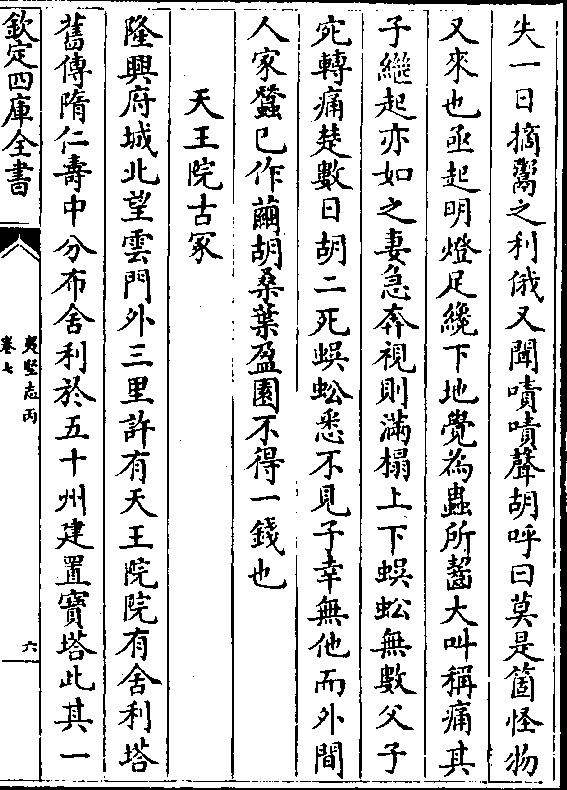 失一日摘鬻之利俄又聞嘖嘖聲胡呼曰莫是箇怪物
又來也亟起明燈足纔下地覺為蟲所齧大叫稱痛其
子繼起亦如之妻急奔視則滿榻上下蜈蚣無數父子
宛轉痛楚數日胡二死蜈蚣悉不見子幸無他而外間
人家蠶已作繭胡桑葉盈園不得一錢也
天王院古冢
隆興府城北望雲門外三里許有天王院院有舍利塔
舊傳隋仁壽中分布舍利於五十州建置寶塔此其一
欽定四庫全書
夷堅志丙
卷七
六